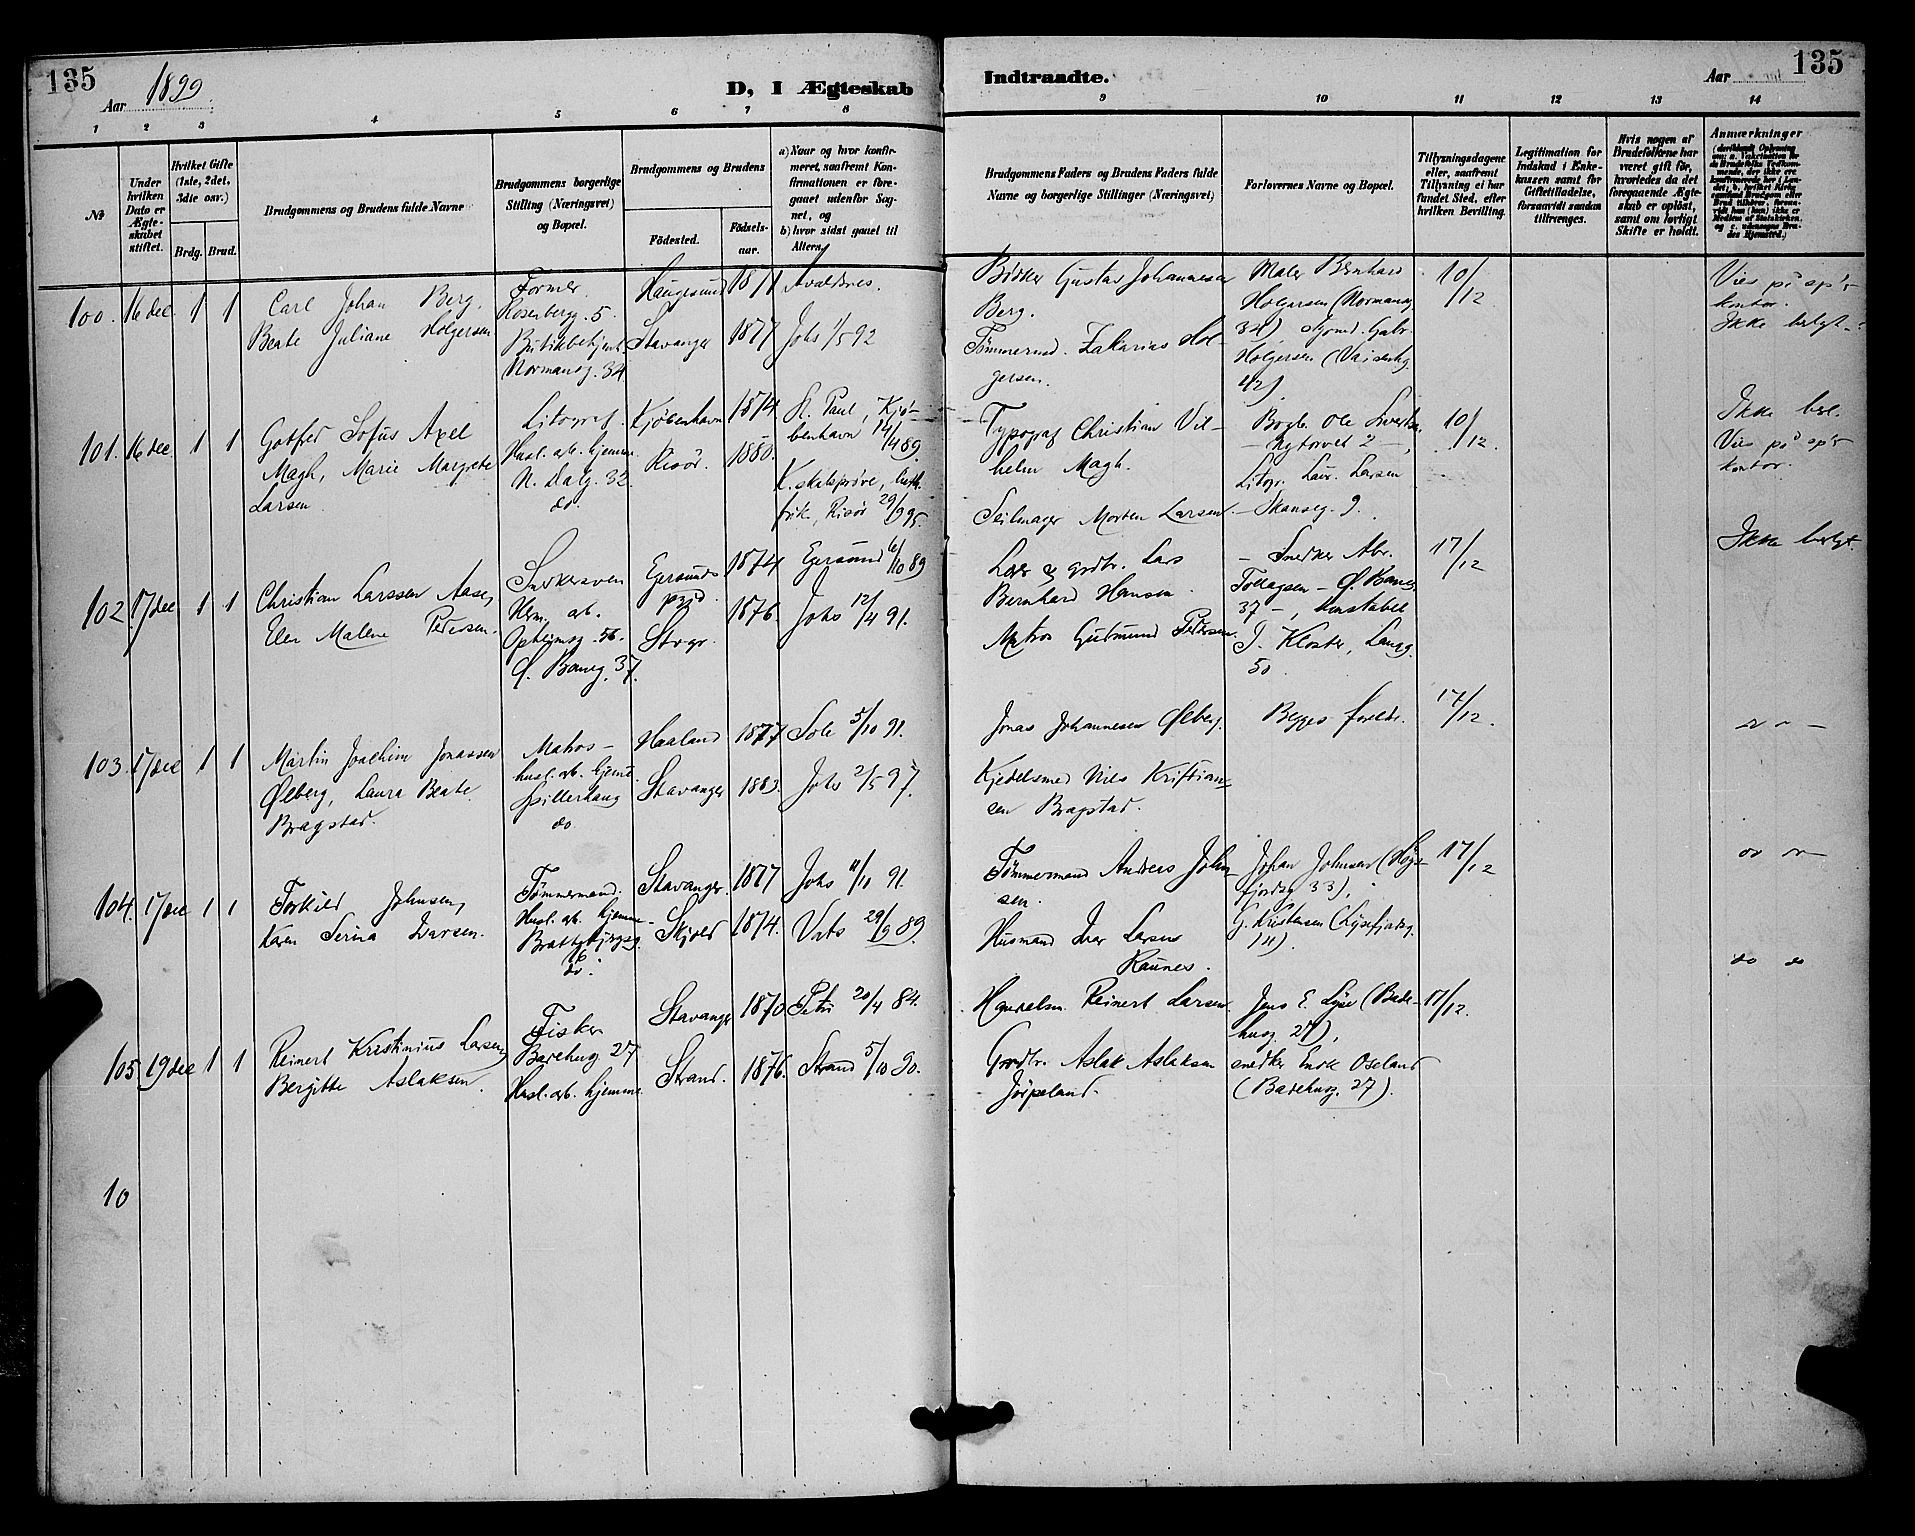 135
Aar 1899.
D, I Ægteskab
Indtraadte.
Aar
135
1 2 3 4 5 6 7 8 9 10 11 12 13 14
No
Under hvilken Dato er Ægte-skabet stiftet.
Hvilket Gifte (1ste, 2det, 3die osv.)
Brdg. Brud.
Brudgommens og Brudens fulde Navne
Brudgommens borgerlige Stilling (Næringsvei) og Bopæl.
Brudgommens og Brudens
Fødested.
Fødsels-aar.
a) Naar og hvor konfir-meret, saafremt Kon-firmationen er fore-gaaet udenfor Sog-net, og
b) hvor sidst gaaet til Alters.
Brudgommens Faders og Brudens Faders fulde Navne og borgerlige Stillinger (Næringsvei)
Forlovernes Navne og Bopæl.
Tillysningsdagene eller, saafremt Tillysning ei har fundet Sted, efter hvilken Bevilling.
Legitimation for Indskud i Enke-kassen samt for Giftetilladelse, forsaavidt saadan tiltrænges.
Hvis nogen af Brudefolkene har været gift før, hvorledes da det foregaaende Ægte-skab er opløst, samt om lovligt Skifte er holdt.
Anmærkninger
100. 16 dec 1 1
Carl Johan Berg,
Beate Juliane Holgersen
Former
Rosenberg. 5.
Butikbetjent
Normansg. 34
Haugesund 1871 Avaldsnes.
Stavanger 1877 Johs 1/5 92
Bødker Gustav Johannesen
Berg.
Tømmermd. Zakarias Hol-
gersen.
Maler Bernhard
Holgersen (Normansg
34), Gabr.
Holgersen (Vaisenhg.
42)
10/12
Vies på sp's
kontor.
Ikke belyst.
101. 16 dec 1 1
Gotfred Sofus Axel
Magh, Marie Margrete
Larsen.
Litograf.
Husl. arb. hjemme
N. Dalg. 32
do.
Kjøbenhavn 1874 St. Paul, Kjø-
benhavn 14/4 89.
Risør. 1880. K. skabsprøve, luth.
frik., Risør 29/9 95
Typograf Christian Vil-
helm Magh.
Seilmager Morten Larsen.
Bogb. Ole
Nytorvet 2
Litogr. Laur. Larsen
Skanseg. 9.
10/12.
Ikke bel.
Vies på sp's
kontor.
102 17 dec 1 1
Christian Larssen Aase,
Elen Malene Pedersen.
Snekkersven
Hjem. arb.
Opheimsg. 56.
Ø. Baneg. 37.
Egersunds
pgjd. 1874 Egersund 6/10 89
Stvgr. 1876. Johs 12/4 91.
Lods og grdbr. Lars
Bernhard Hansen.
Matros Gudmund Pedersen.
Snedker Abr.
Tollagsen Ø. Baneg.
37, konstabel
T. Kloster, Langg.
50
17/12
Ikke belyst.
103. 17 dec 1 1
Martin Joachim Jonassen
Ølberg, Laura Beate
Bragstad.
Matros
husl. arb. hjemme
Spillerhaug
do.
Haaland 1877 Sole 5/10 91.
Stavanger 1883. Johs 2/5 97.
Jonas Johannesen Ølberg.
Kjedelsmed Nils Kristian-
sen Bragstad.
Begges foreldr.
17/12.
do do
104. 17 dec 1 1
Torkild Johnsen,
Karen Serina Larsen.
Tømmermand.
Husl. arb. hjemme
Brattebjergsg.
16
do.
Stavanger. 1877 Johs 11/10 91.
Skjold 1874. Vats 29/9 89.
Tømmermand Andreas John-
sen.
Husmand Ivar Larsen
Raunes.
Johan Johnsen (Høgs-
fjordsg 33),
G. Kristensen (Lysefjordsg.
14).
17/12
do do
105. 19 dec 1 1
Reinert Kristinius Larsen,
Bergitte Aslaksen.
Fisker
Badehusg 27
Husl. arb. hjemme
Stavanger 1870 Petri 20/4 84.
Strand. 1876. Strand 5/10 90.
Handelsm. Reinert Larsen.
Grdbr. Aslak Aslaksen
Jørpeland.
Jens E. Lyse (Bade-
husg. 27),
snedker Enok Oseland
(Badehusg. 27).
17/12.
do do
10